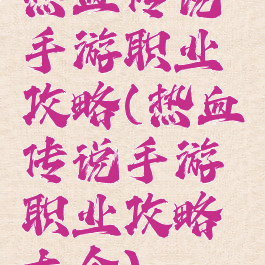 热血传说
手游职业
攻略(热血
传说手游
职业攻略
大全)